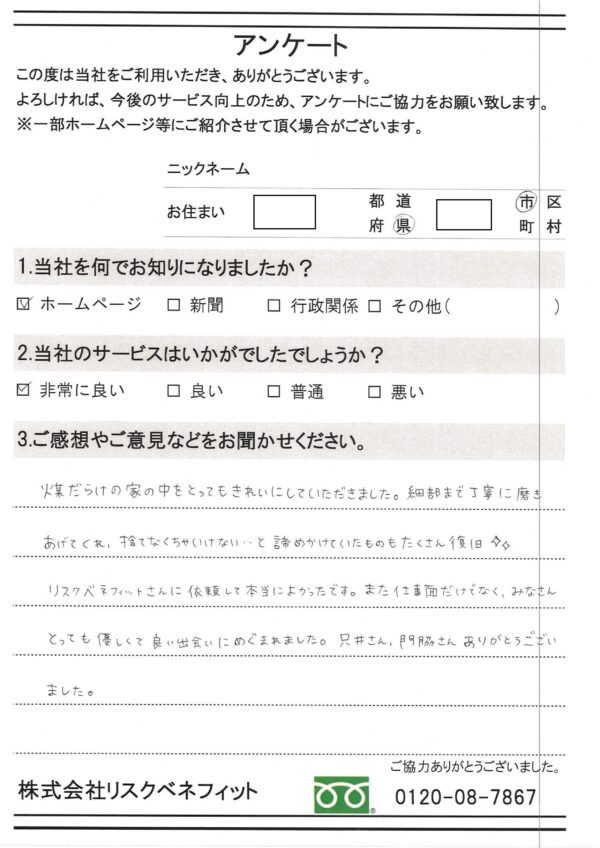 アンケート
この度は当社をご利用いただき、ありがとうございます。
よろしければ、今後のサービス向上のため、アンケートにご協力をお願い致します。
※一部ホームページ等にご紹介させて頂く場合がございます。
ニックネーム
お住まい 都 道 府 県 市 区 町 村
1.当社を何でお知りになりましたか？
☑ ホームページ □ 新聞 □ 行政関係 □ その他( )
2.当社のサービスはいかがでしたでしょうか？
☑ 非常に良い □ 良い □ 普通 □ 悪い
3.ご感想やご意見などをお聞かせください。
煤だらけの家の中をとってもきれいにしていただきました。細部まで丁寧に磨き
あげてくれ、捨てなくちゃいけない…と諦めかけていたものもたくさん復旧✧✧
リスクベネフィットさんに依頼して本当によかったです。また仕事面だけでなく、みなさん
とっても優しくて良い出会いにめぐまれました。只井さん、門脇さんありがとうござい
ました。
ご協力ありがとうございました。
株式会社リスクベネフィット 0120-08-7867